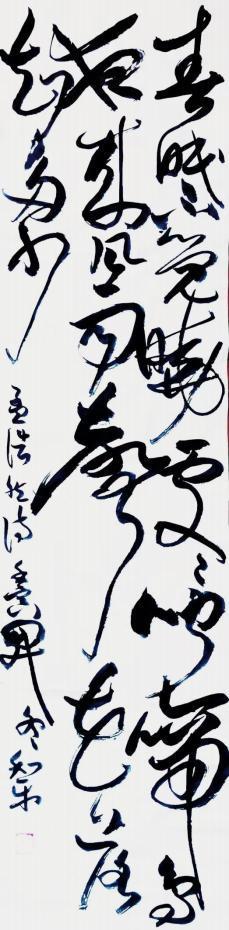 春眠不觉晓处处闻啼鸟
夜来风雨声花落
知多少
孟浩然诗